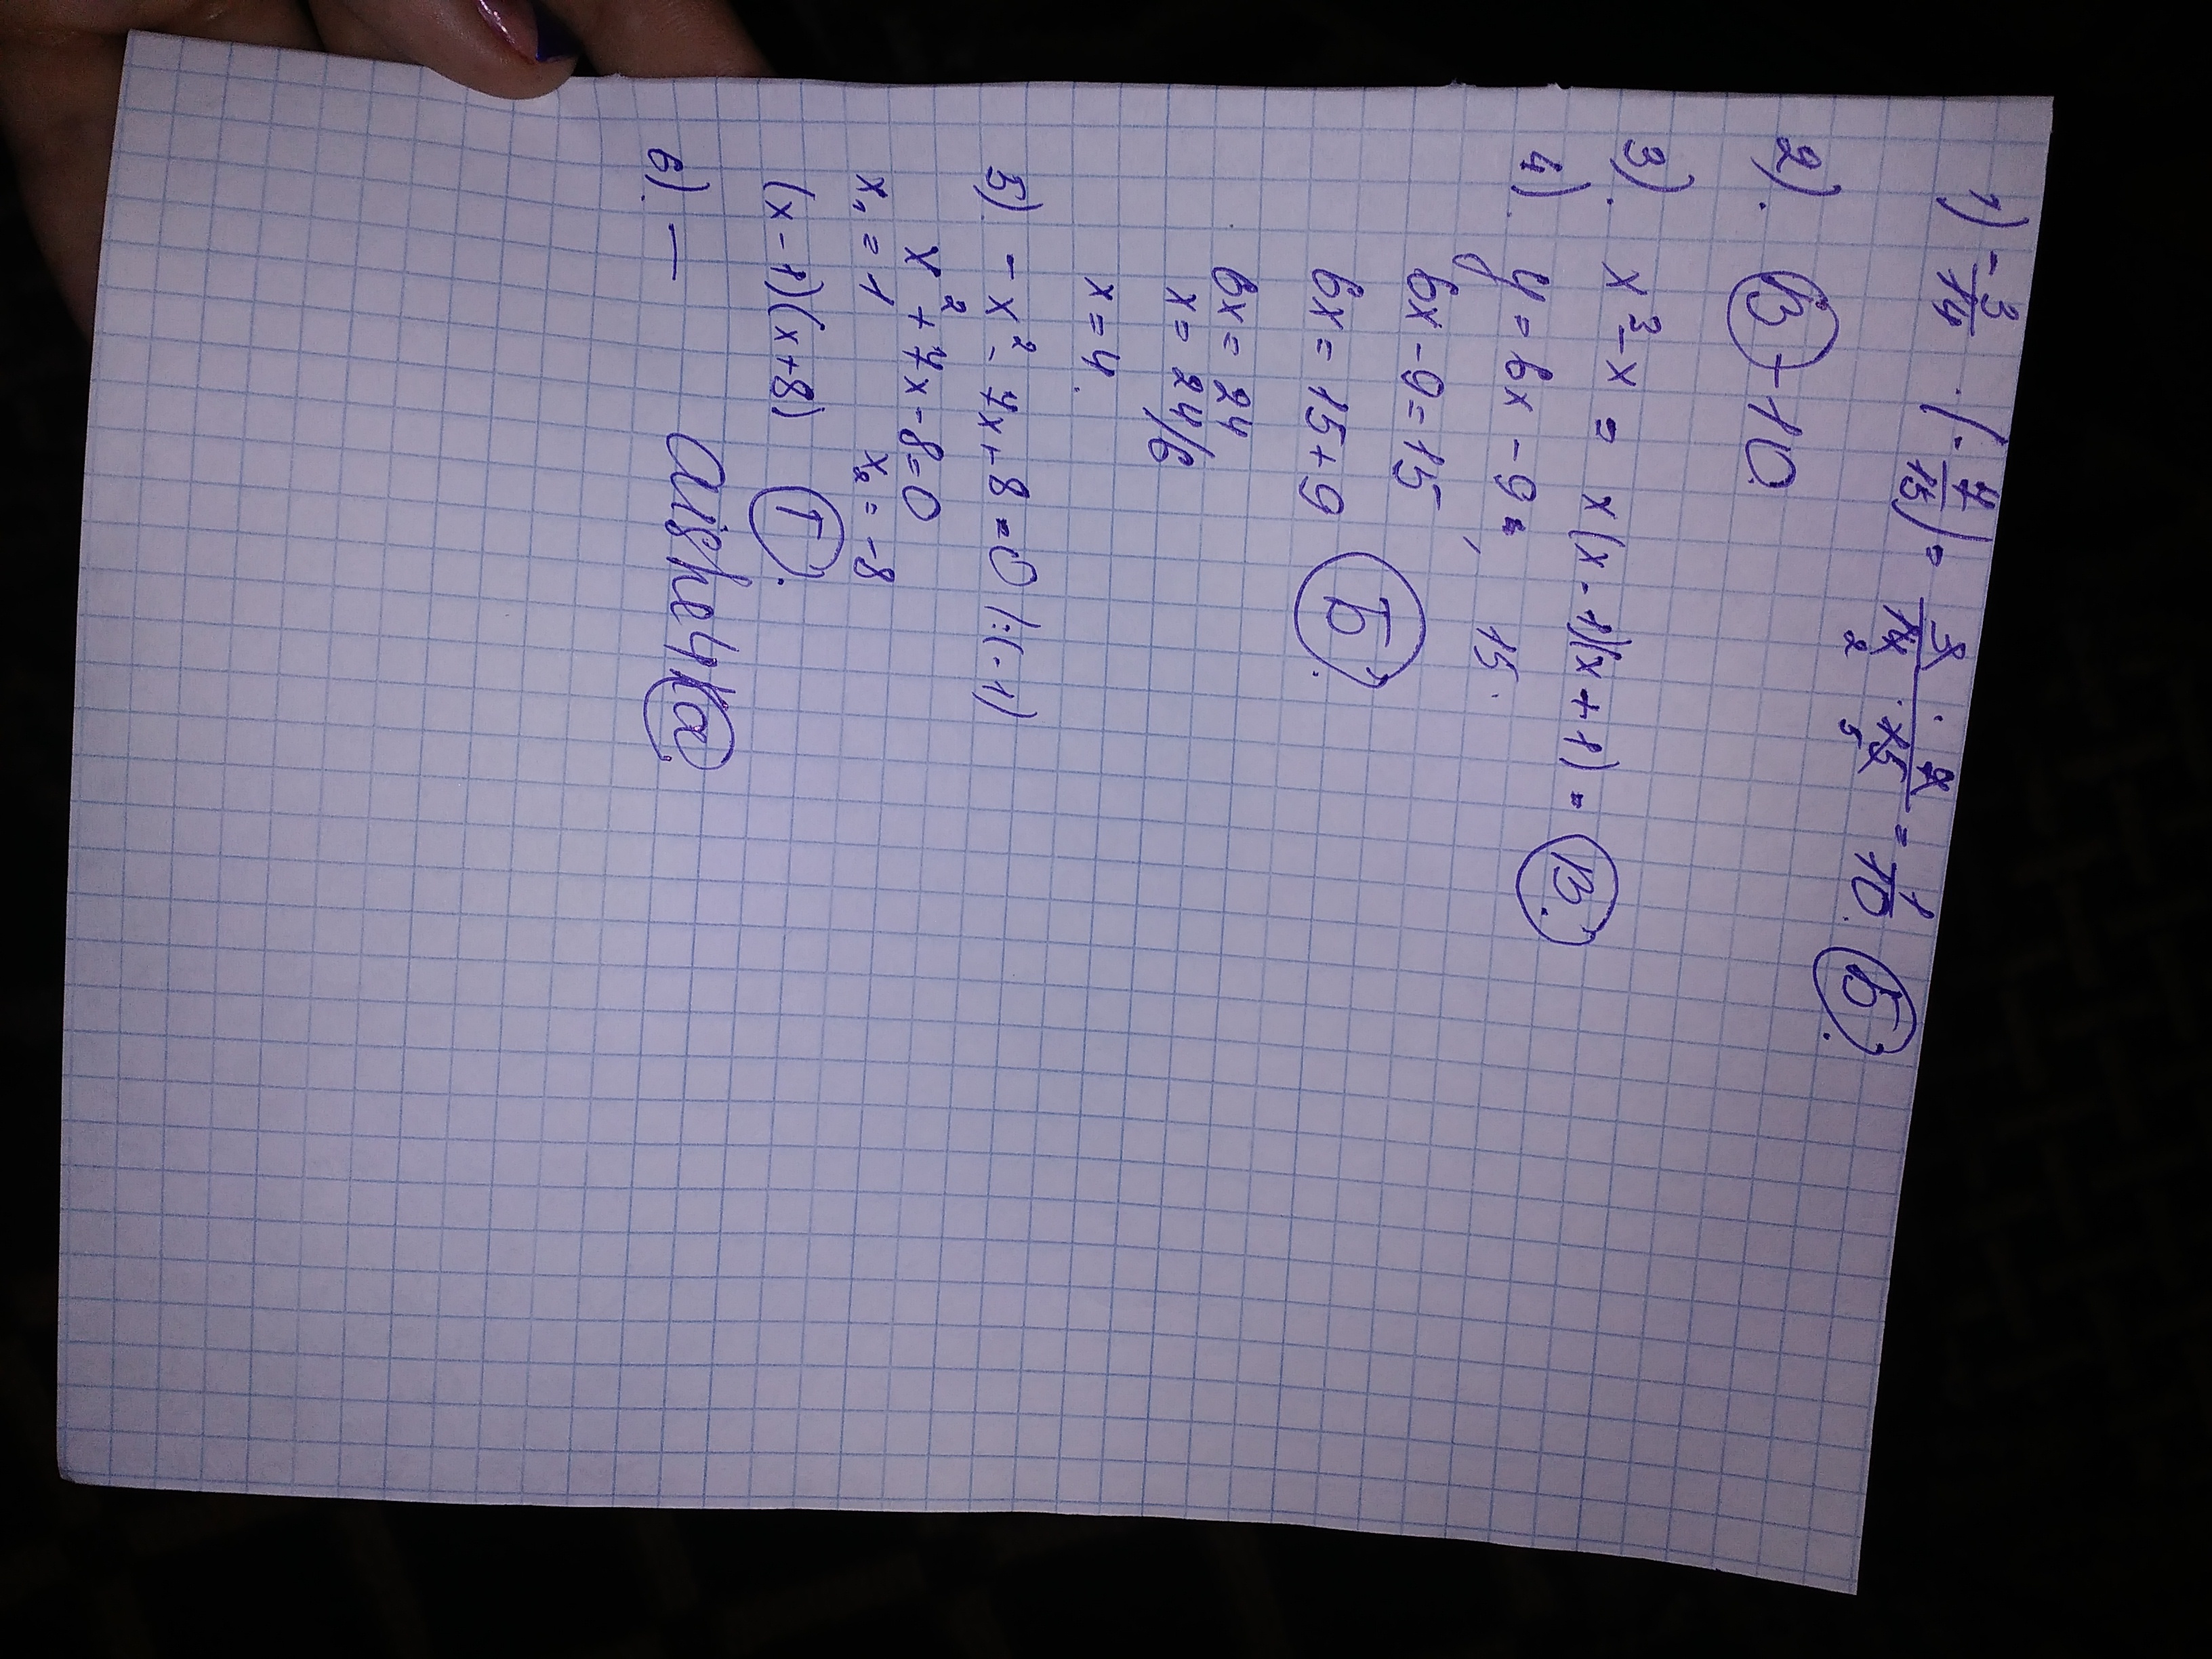 1) -3/14 · (-7/15) = 3 · 7 / 14 · 15 = 1/10. Б.
2 5
2). В -10.
3). x³-x = x(x-1)(x+1) = В.
4). y = 6x - 9 , 15.
6x - 9 = 15
6x = 15 + 9 Б.
6x = 24
x = 24/6
x = 4.
5) - x² - 7x + 8 = 0 |:(-1)
x² + 7x - 8 = 0
x₁ = 1 x₂ = -8
(x - 1)(x + 8) Г.
6). —